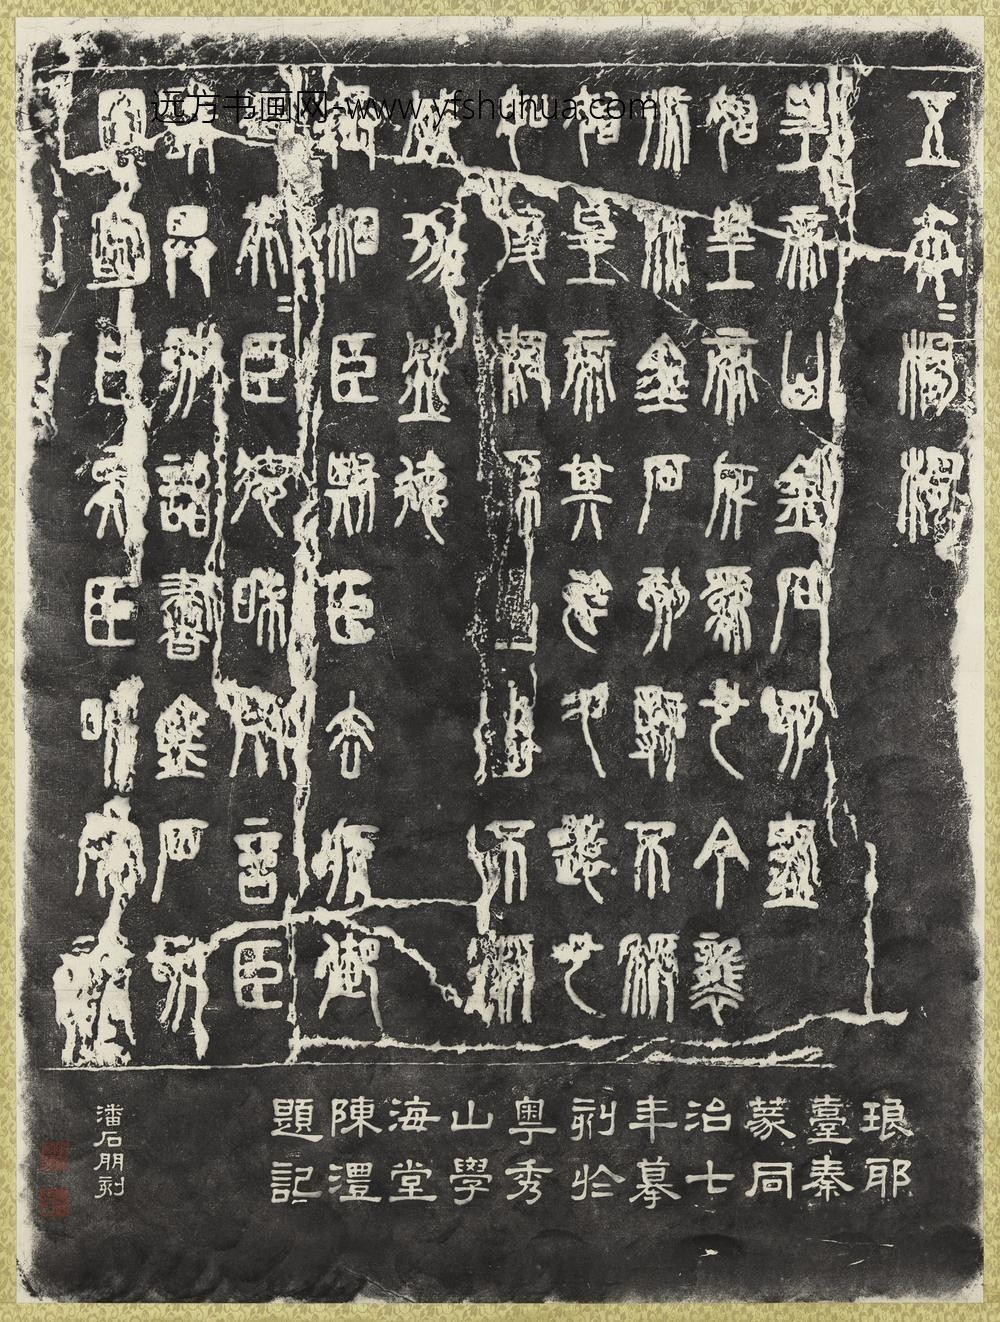 远方书画网-www.yfshuhua.com
五夫=楊樛
皇帝曰金石刻盡
始皇帝所為也今襲
號而金石刻辭不稱
始皇帝其於久遠也
如後嗣為之者不稱
成功盛德
丞相臣斯臣去疾御
史夫=臣德昧死言臣
請具刻詔書金石刻
因明白矣臣昧死請
琅邪
臺秦
篆同
治七
年摹
刻於
粵秀
山學
海堂
陳澧
題記
潘石朋刻